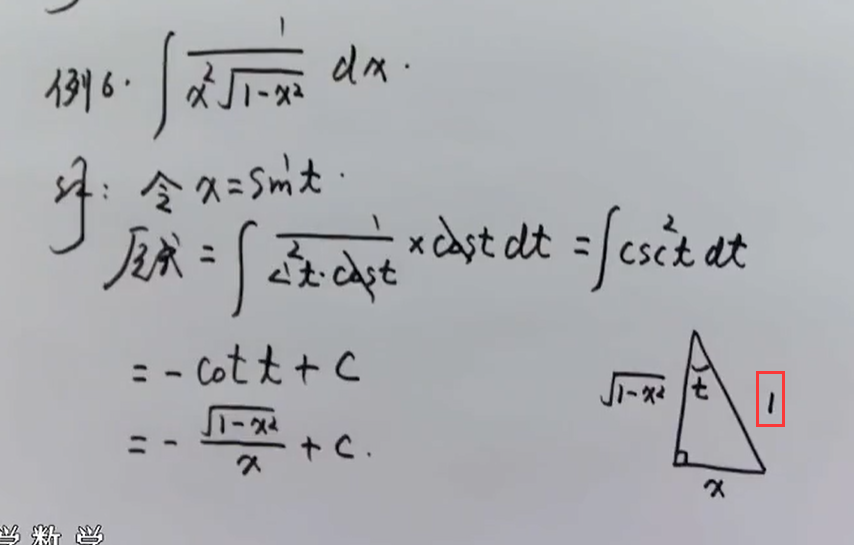 例6. ∫ 1/(x²√(1-x²)) dx.
解: 令 x = sin t.
原式 = ∫ 1/(sin²t·cost) × cost dt = ∫ csc²t dt
= - cot t + C
= - √(1-x²)/x + C.
√(1-x²) t 1
x
学数学